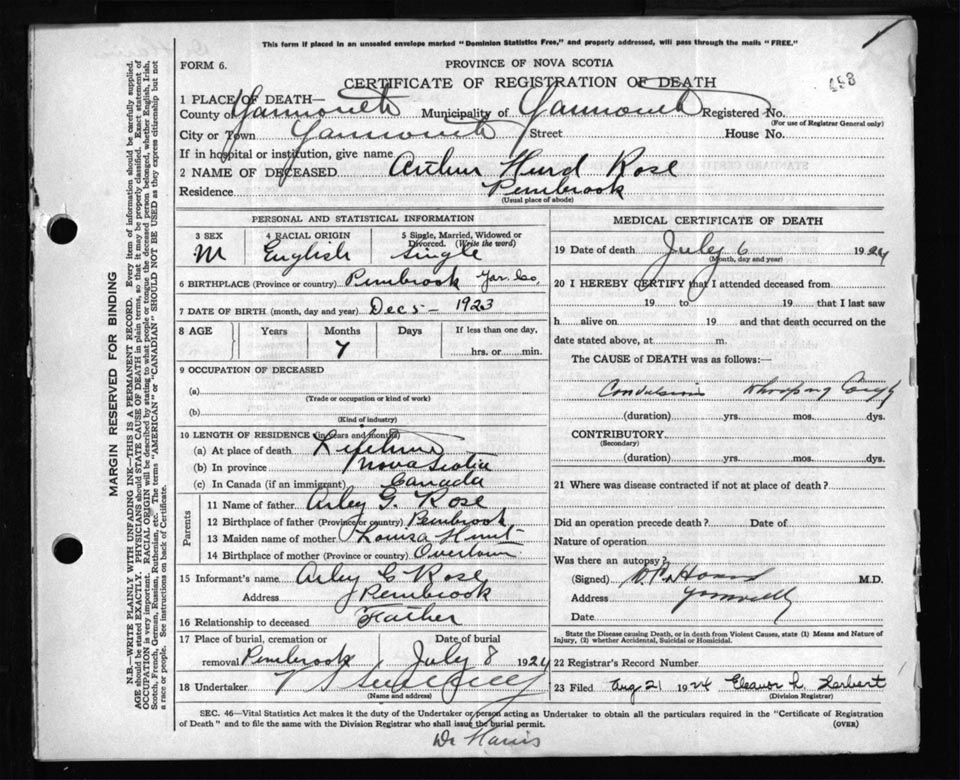 This form if placed in an unsealed envelope marked "Dominion Statistics Free," and properly addressed, will pass through the mails "FREE."
FORM 6.
PROVINCE OF NOVA SCOTIA
CERTIFICATE OF REGISTRATION OF DEATH
1 PLACE OF DEATH—
County of Yarmouth Municipality of Yarmouth Registered No.
(For use of Registrar General only)
City or Town Yarmouth Street House No.
If in hospital or institution, give name
2 NAME OF DECEASED Arthur Hurd Rose
Residence Pembrook
(Usual place of abode)
PERSONAL AND STATISTICAL INFORMATION
3 SEX 4 RACIAL ORIGIN 5 Single, Married, Widowed or Divorced. (Write the word)
M English Single
6 BIRTHPLACE (Province or country) Pembrook Yar. Co.
7 DATE OF BIRTH (month, day and year) Dec 5 - 1923
8 AGE Years Months Days If less than one day,
7 hrs. or min.
9 OCCUPATION OF DECEASED
(a)
(Trade or occupation or kind of work)
(b)
(Kind of industry)
10 LENGTH OF RESIDENCE (in years and months)
(a) At place of death Lifetime
(b) In province Nova Scotia
(c) In Canada (if an immigrant) Canada
Parents
11 Name of father Arley G. Rose
12 Birthplace of father (Province or country) Pembrook
13 Maiden name of mother Louisa Hunt
14 Birthplace of mother (Province or country) Overton
15 Informant's name Arley G Rose
Address Pembrook
16 Relationship to deceased Father
17 Place of burial, cremation or Date of burial
removal Pembrook July 8 1924
18 Undertaker
(Name and address)
MEDICAL CERTIFICATE OF DEATH
19 Date of death July 6 1924
(Month, day and year)
20 I HEREBY CERTIFY that I attended deceased from
19 to 19 that I last saw
h alive on 19 and that death occurred on the
date stated above, at m.
The CAUSE of DEATH was as follows:—
Convulsions Whooping Cough
(duration) yrs. mos. dys.
CONTRIBUTORY
(Secondary)
(duration) yrs. mos. dys.
21 Where was disease contracted if not at place of death?
Did an operation precede death? Date of
Nature of operation
Was there an autopsy?
(Signed) M.D.
Address Yarmouth
Date
State the Disease causing Death, or in death from Violent Causes, state (1) Means and Nature of
Injury, (2) whether Accidental, Suicidal or Homicidal.
22 Registrar's Record Number
23 Filed Aug 21 1924 Eleanor L. Herbert
(Division Registrar)
SEC. 46—Vital Statistics Act makes it the duty of the Undertaker or person acting as Undertaker to obtain all the particulars required in the "Certificate of Registration
of Death" and to file the same with the Division Registrar who shall issue the burial permit. (OVER)
Dr Harris
MARGIN RESERVED FOR BINDING
N.B.—WRITE PLAINLY WITH UNFADING INK—THIS IS A PERMANENT RECORD. Every item of information should be carefully supplied.
AGE should be stated EXACTLY. PHYSICIANS should STATE CAUSE OF DEATH in plain terms, so that it may be properly classified. Exact statement of
OCCUPATION is very important. RACIAL ORIGIN will be described by stating to what people or tongue the deceased person belonged, whether English, Irish,
Scotch, French, German, Russian, Ruthenian, etc. The terms "AMERICAN" or "CANADIAN" SHOULD NOT BE USED as they express citizenship but not
a race or people. See instructions on back of Certificate.